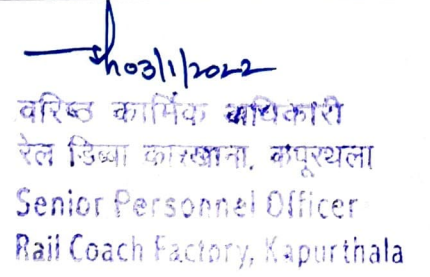 03/1/2022
वरिष्ठ कार्मिक अधिकारी
रेल डिब्बा कारखाना, कपूरथला
Senior Personnel Officer
Rail Coach Factory, Kapurthala